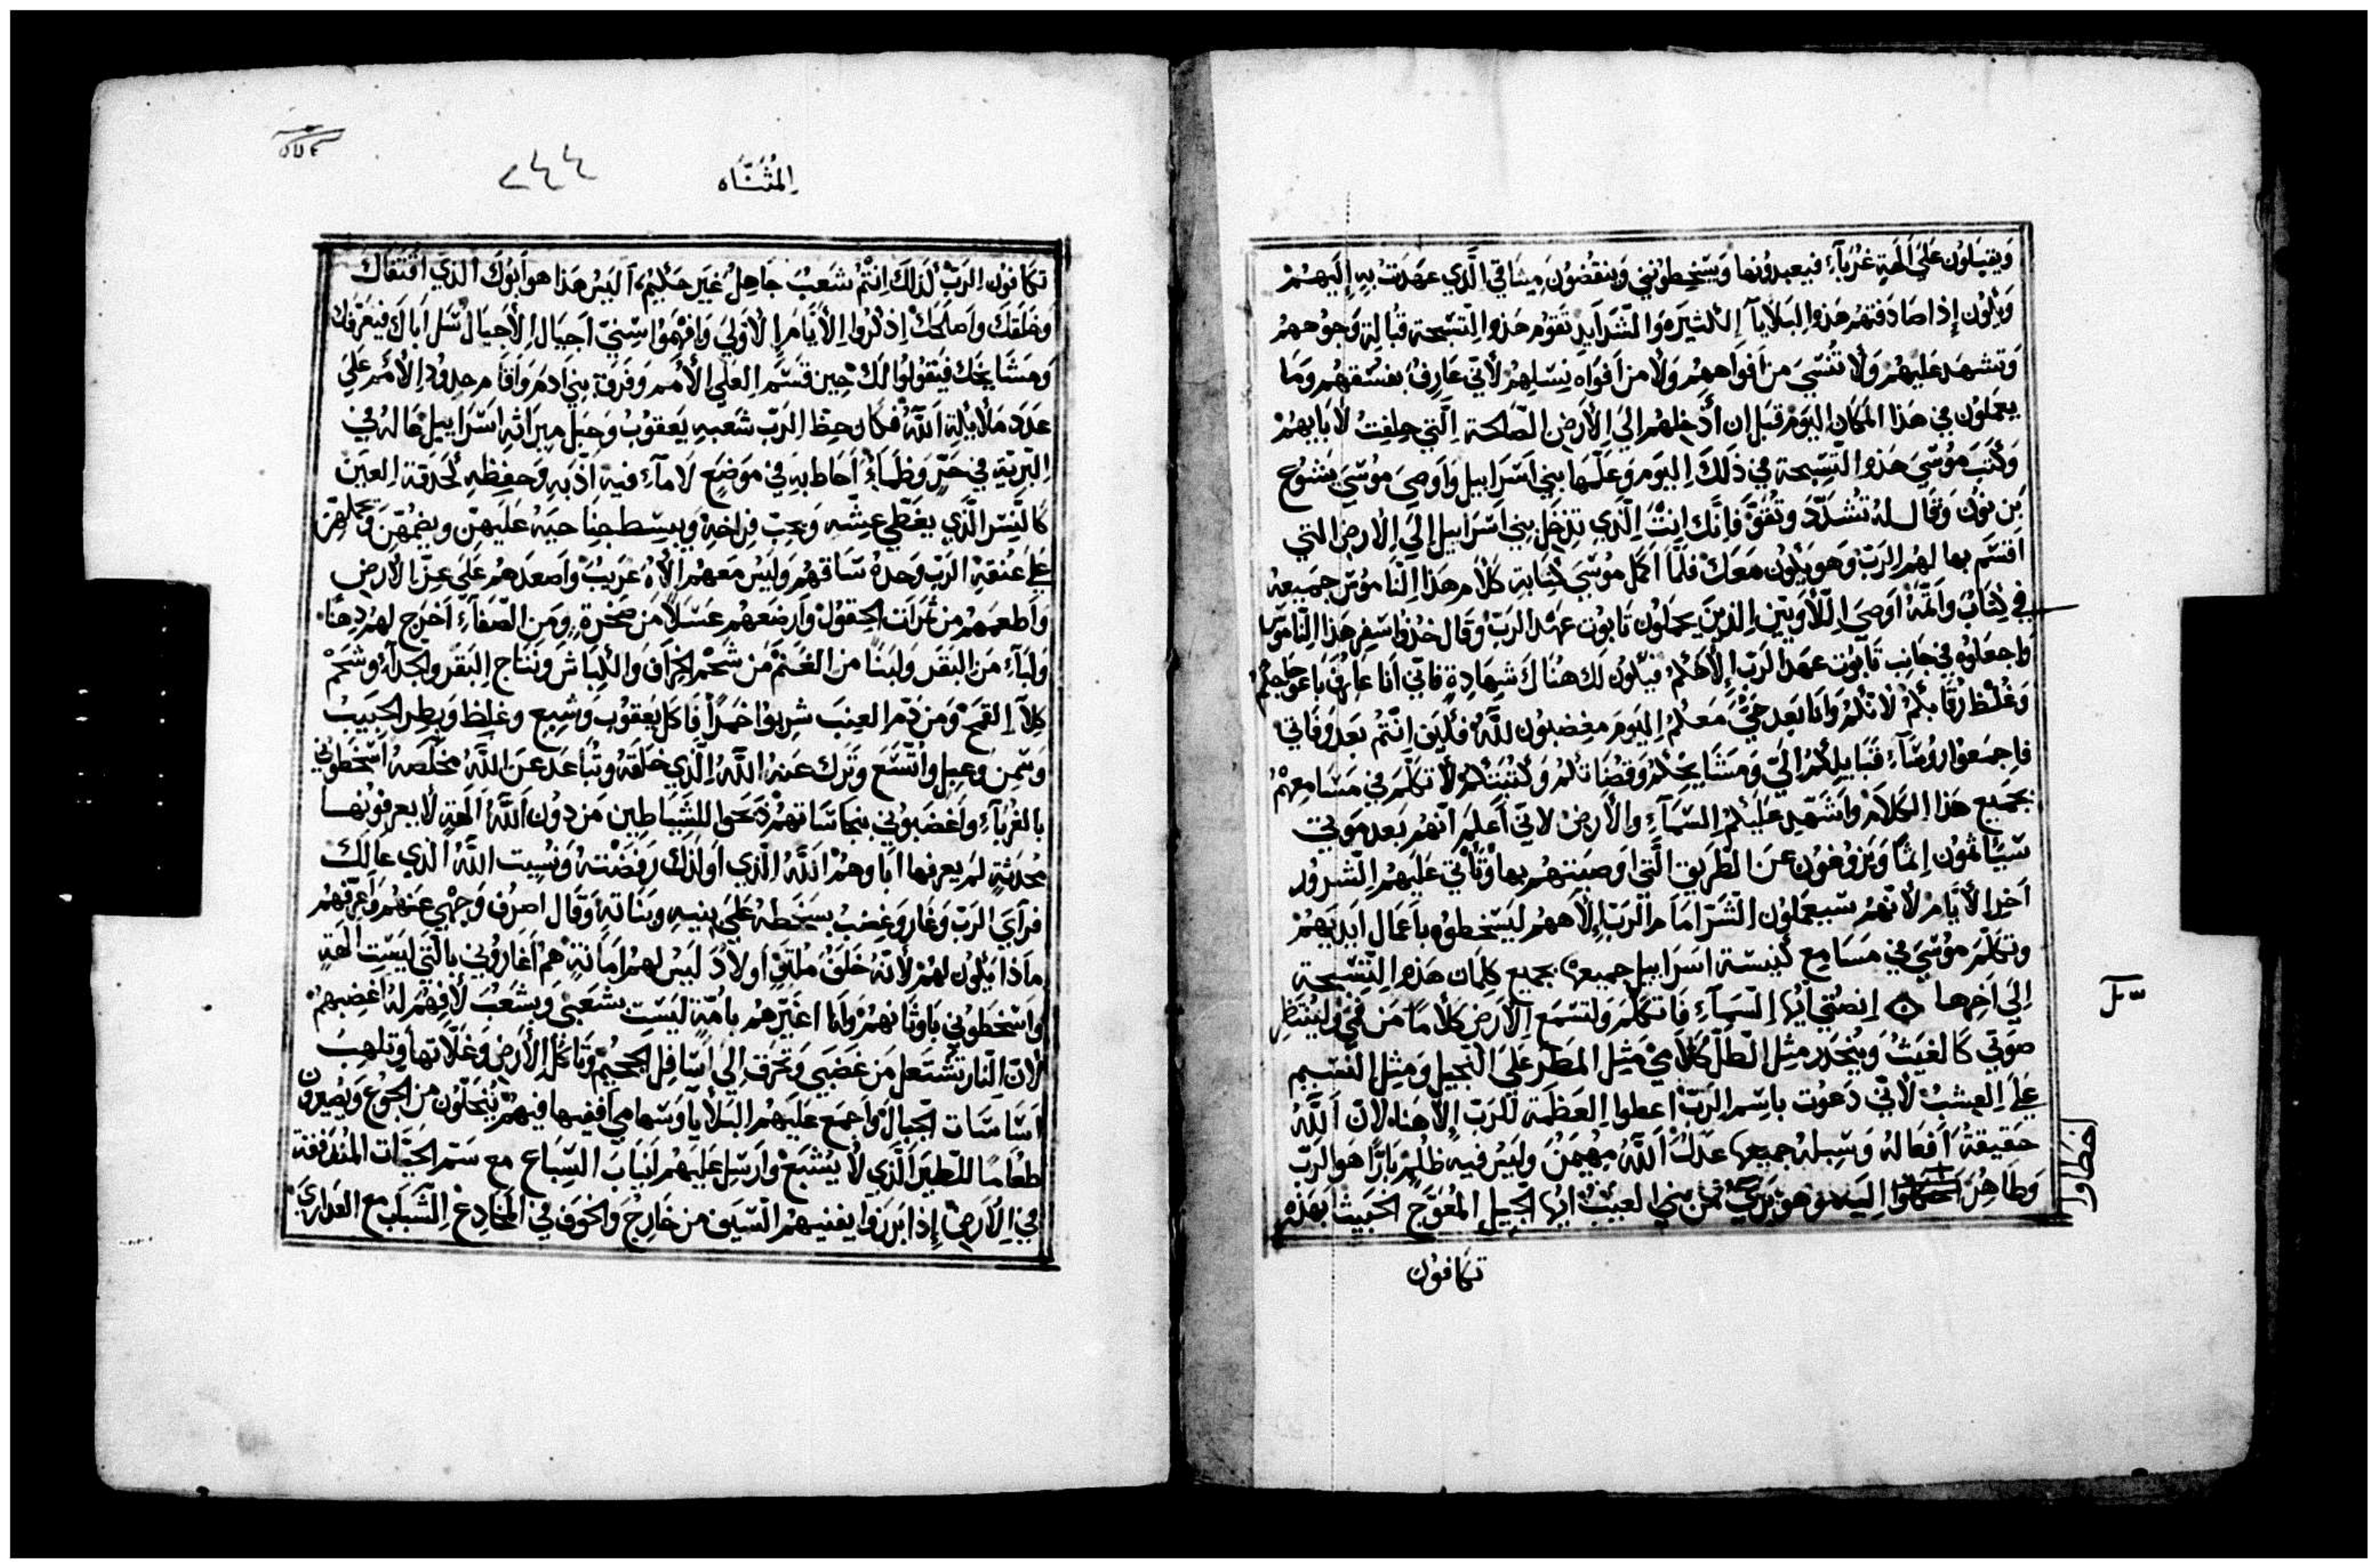 ويقبلون على الهة غرباء فيعبدونها ويسخطوني وينقضون ميثاقي الذي عهدت به إليهم
ويكون إذا صادفتهم هذه البلايا الكثيره والشدايد تقوم هذه التسبحة قبالة وجوههم
وتشهد عليهم ولا تنسى من افواههم ولا من افواه نسلهم لأني عارف بفسقهم وما
يعملون في هذا المكان اليوم قبل ان أدخلهم الى الارض الصالحة التي حلفت لابايهم
وكتب موسى هذه التسبحة في ذلك اليوم وعلمها بني اسرايل واوصى موسى يشوع
بن نون وقال له تشدد وتقو فانك انت الذي تدخل بني اسرايل إلى الارض التي
اقسم بها لهم الرب وهو يكون معك فلما اكمل موسى كتابة كلام هذا الناموس جميعه
في كتاب واتمه اوصى اللاويين الذين يحملون تابوت عهد الرب وقال خذوا سفر هذا الناموس
واجعلوه في جانب تابوت عهد الرب الاهكم فيكون لك هناك شهادة فاني انا عارف باعوجاجكم
وغلظ رقابكم لانكم وانا بعد حي معكم اليوم مغضبون لله فكيف انتم بعد وفاتي
فاجمعوا روساء قبايلكم الي ومشايخكم وقضاتكم وكتبتكم لاتكلم في مسامعهم
بجميع هذا الكلام واشهد عليكم السماء والارض لاني أعلم انهم بعد موتي
سياثمون إثما ويزوغون عن الطريق التي اوصيتهم بها وتأتي عليهم الشرور
اخر الأيام لانهم سيعملون الشر امام الرب إلاههم ليسخطوه باعمال ايديهم
وتكلم موسى في مسامع كنيسة اسرايل جميعها بجميع كلمات هذه التسبحة
إلى اخرها انصتي ايها السماء فاتكلم ولتسمع الارض كلاما من فمي ولينتظر
صوتي كالغيث وينحدر مثل الطل كلامي مثل المطر على النجيل ومثل النسيم
على العشب لأني دعوت باسم الرب اعطوا العظمة للرب إلاهنا لان الله
حقيقة افعاله وسبله جميعها عدل الله مهيمن وليس فيه ظلم بارا هو الرب
وطاهر اليه هو بري من بني العبث ايها الجيل المعوج الخبيث بهذه
اخطاوا
تكافون
المثناه
٢٤٤
تكافون الرب لذلك انتم شعب جاهل غير حكيم، اليس هذا هو ابوك الذي اقتناك
وخلقك واصلحك إذكروا الأيام الأولى وافهموا سني اجيال الأجيال سل اباك فيعرفك
ومشايخك فيقولوا لك حين قسم العلي الأمم وفرق بني ادم واقام حدود الأمم على
عدد ملايكة الله فكان حظ الرب شعبه يعقوب وحبل ميراثه اسرايل عاله في
البرية في حر وظماء احاط به في موضع لا ماء فيه اذبه وحفظه كحدقة العين
كالنسر الذي يغطي عشه ويحب فراخه ويبسط جناحيه عليهن ويضمهن ويحملهن
على عنقه الرب وحده ساقهم وليس معهم الاه غريب واصعدهم على عز الارض
واطعمهم من ثمرات الحقول وارضعهم عسلا من صخرة ومن الصفاء أخرج لهم دهنا
ولباء من البقر ولبنا من الغنم من شحم الخراف والكباش ونتاج البقر والجداء وشحم
كلا القمح ومن دم العنب شربوا خمرا فاكل يعقوب وشبع وغلظ وبطر الحبيب
وسمن وعبل واتسع وترك عنه الله الذي خلقه وتباعد عن الله مخلصه اسخطوني
بالغرباء واغضبوني بنجاساتهم ذبحوا للشياطين من دون الله الهة لا يعرفونها
محدثة لم يعرفها اباوهم الله الذي اولدك رفضته ونسيت الله الذي عالك
فراى الرب وغار وغضب بسخطه على بنيه وبناته وقال اصرف وجهي عنهم واعرفهم
ماذا يكون لهم لأنه خلف ملتو اولاد ليس لهم امانة هم أغاروني بالتي ليست الهة
واسخطوني باوثانهم وانا اغيرهم بامة ليست بشعبي وبشعب لا فهم له اغضبهم
لان النار تشتعل من غضبي وتحرق إلى اسافل الجحيم وتاكل الارض وغلاتها وتلهب
اساسات الجبال واجمع عليهم البلايا وسهامي افنيها فيهم ينحلون من الجوع ويصيرون
طعاما للطير الذي لا يشبع وارسل عليهم انياب السباع مع سم الحيات
في الارض إذا برزوا يفنيهم السيف من خارج والخوف في المخادع الشباب مع العذارى